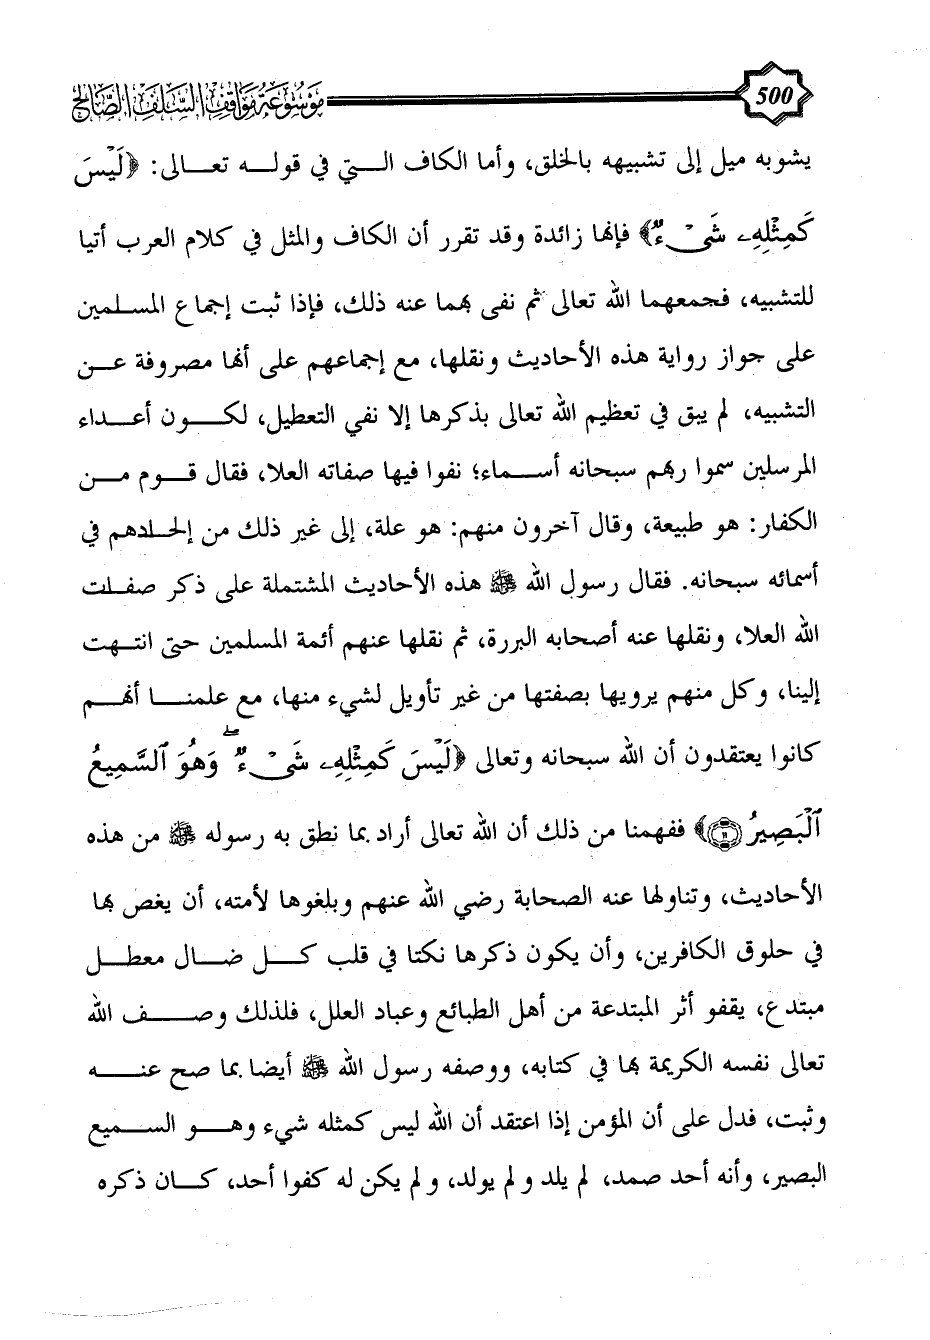 500
موسوعة مواقف السلف الصالح
يشوبه ميل إلى تشبيهه بالخلق، وأما الكاف التي في قوله تعالى: ﴿لَيْسَ
كَمِثْلِهِۦ شَىْءٌ﴾ فإنها زائدة وقد تقرر أن الكاف والمثل في كلام العرب أتيا
للتشبيه، فجمعهما الله تعالى ثم نفى بهما عنه ذلك، فإذا ثبت إجماع المسلمين
على جواز رواية هذه الأحاديث ونقلها، مع إجماعهم على أنها مصروفة عن
التشبيه، لم يبق في تعظيم الله تعالى بذكرها إلا نفي التعطيل، لكون أعداء
المرسلين سموا ربهم سبحانه أسماء؛ نفوا فيها صفاته العلا، فقال قوم من
الكفار: هو طبيعة، وقال آخرون منهم: هو علة، إلى غير ذلك من إلحادهم في
أسمائه سبحانه. فقال رسول الله ﷺ هذه الأحاديث المشتملة على ذكر صفات
الله العلا، ونقلها عنه أصحابه البررة، ثم نقلها عنهم أئمة المسلمين حتى انتهت
إلينا، وكل منهم يرويها بصفتها من غير تأويل لشيء منها، مع علمنا أنهم
كانوا يعتقدون أن الله سبحانه وتعالى ﴿لَيْسَ كَمِثْلِهِۦ شَىْءٌ ۖ وَهُوَ ٱلسَّمِيعُ
ٱلْبَصِيرُ ۝١١﴾ ففهمنا من ذلك أن الله تعالى أراد بما نطق به رسوله ﷺ من هذه
الأحاديث، وتناولها عنه الصحابة رضي الله عنهم وبلغوها لأمته، أن يغص بها
في حلوق الكافرين، وأن يكون ذكرها نكتا في قلب كل ضال معطل
مبتدع، يقفو أثر المبتدعة من أهل الطبائع وعباد العلل، فلذلك وصف الله
تعالى نفسه الكريمة بها في كتابه، ووصفه رسول الله ﷺ أيضا بما صح عنه
وثبت، فدل على أن المؤمن إذا اعتقد أن الله ليس كمثله شيء وهو السميع
البصير، وأنه أحد صمد، لم يلد ولم يولد، ولم يكن له كفوا أحد، كان ذكره